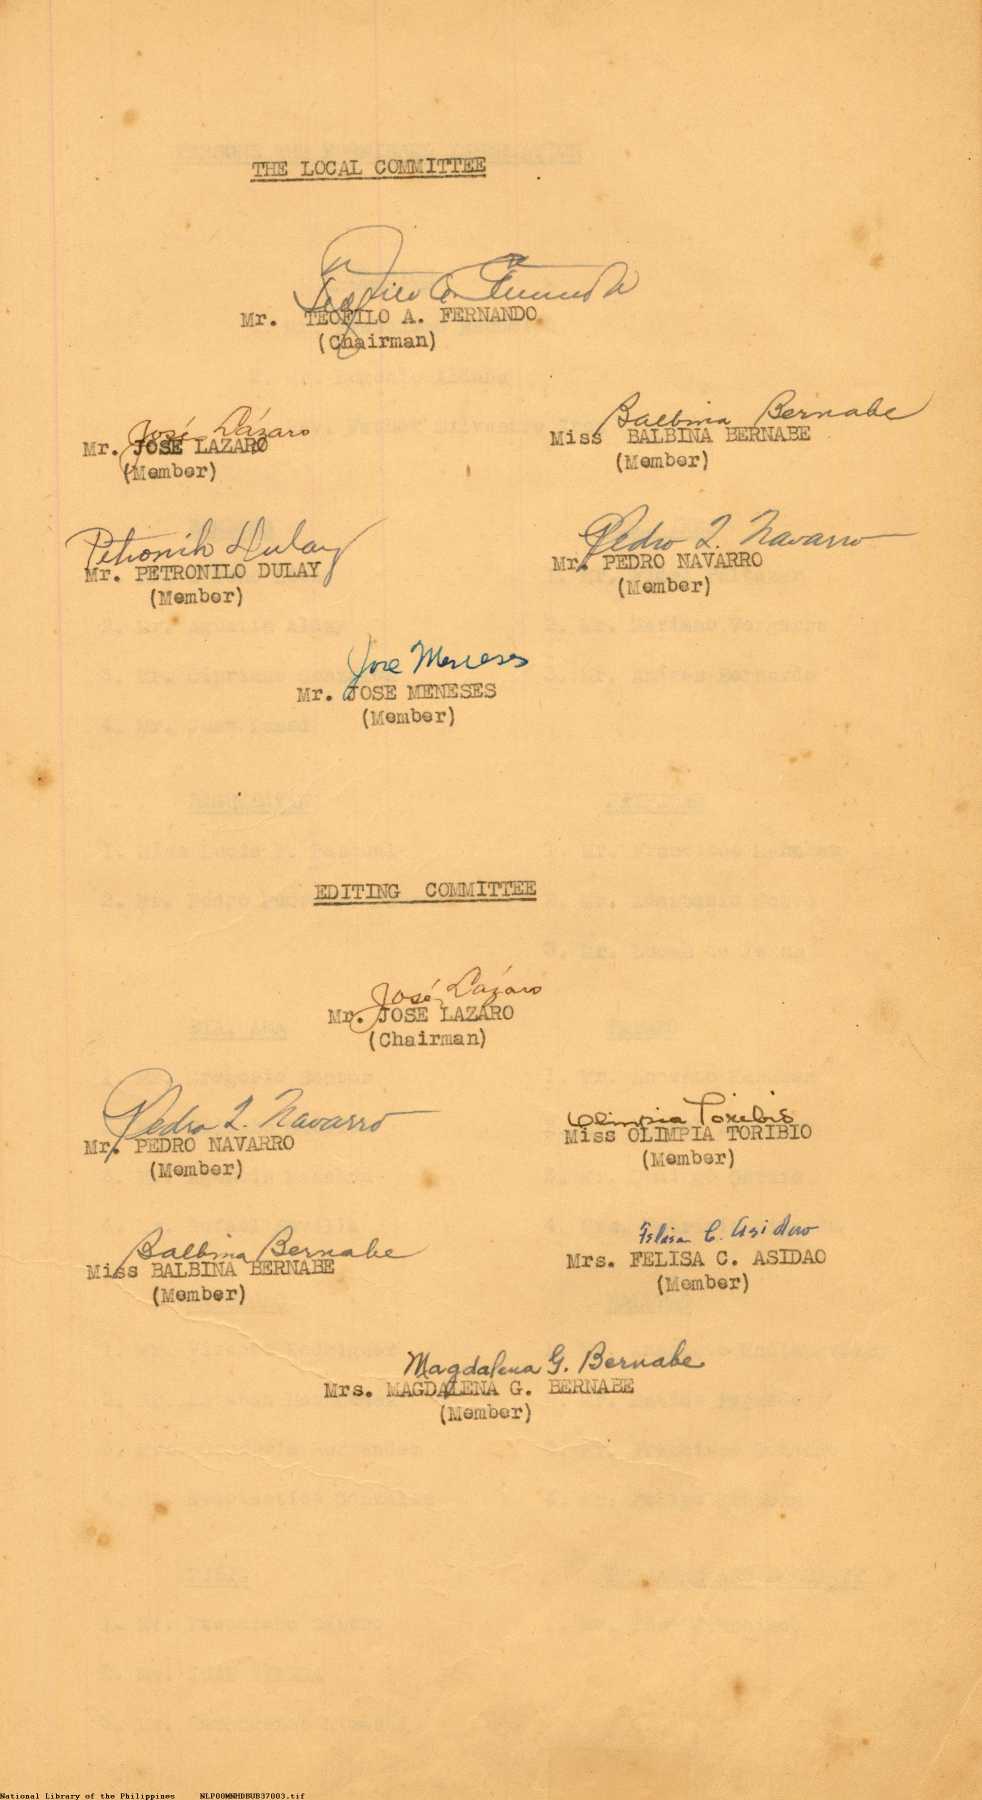 THE LOCAL COMMITTEE
Mr. TEOFILO A. FERNANDO
(Chairman)
José Lázaro
Mr. JOSE LAZARO
(Member)
Balbina Bernabe
Miss BALBINA BERNABE
(Member)
Petronilo Dulay
Mr. PETRONILO DULAY
(Member)
Pedro L. Navarro
Mr. PEDRO NAVARRO
(Member)
Jose Meneses
Mr. JOSE MENESES
(Member)
EDITING COMMITTEE
José Lázaro
Mr. JOSE LAZARO
(Chairman)
Pedro L. Navarro
Mr. PEDRO NAVARRO
(Member)
Olimpia Toribio
Miss OLIMPIA TORIBIO
(Member)
Balbina Bernabe
Miss BALBINA BERNABE
(Member)
Felisa C. Asidao
Mrs. FELISA C. ASIDAO
(Member)
Magdalena G. Bernabe
Mrs. MAGDALENA G. BERNABE
(Member)
National Library of the Philippines NLP00MNHDBUB37003.tif